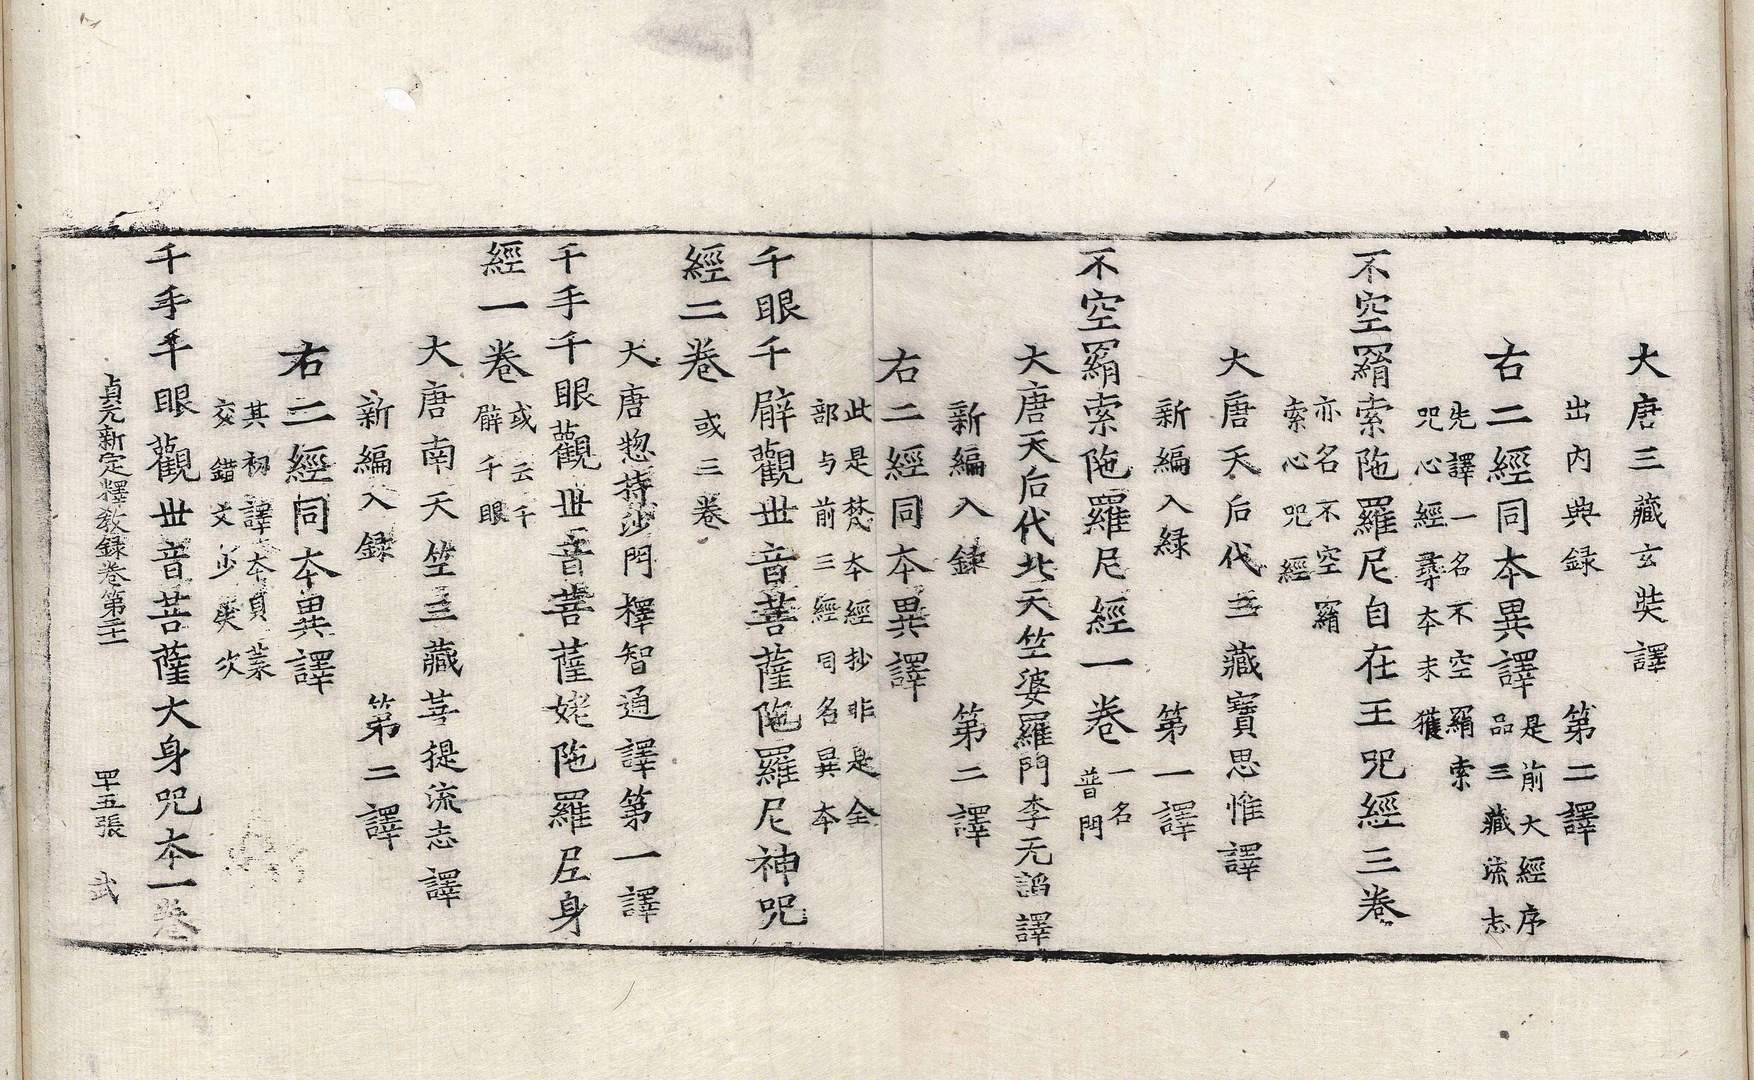 大唐三藏玄奘譯
出內典録　第二譯
右二經同本異譯
是前大經序
品三藏流志
先譯一名不空羂索
咒心經尋本未獲
不空羂索陁羅尼自在王咒經三卷
亦名不空羂
索心咒經
大唐天后代三藏寶思惟譯
新編入録　第一譯
不空羂索陁羅尼經一卷
一名
普門
大唐天后代北天竺婆羅門李无諂譯
新編入録　第二譯
右二經同本異譯
此是梵本經抄非是全
部与前三經同名異本
千眼千臂觀世音菩薩陁羅尼神咒
經二卷　或三卷
大唐惣持沙門釋智通譯第一譯
千手千眼觀世音菩薩姥陁羅尼身
經一卷
或云千
臂千眼
大唐南天竺三藏菩提流志譯
新編入録　第二譯
右二經同本異譯
其初譯本貝葉
交錯文少失次
千手千眼觀世音菩薩大身咒本一卷
貞元新定釋教録卷第二十二　四十五張　武